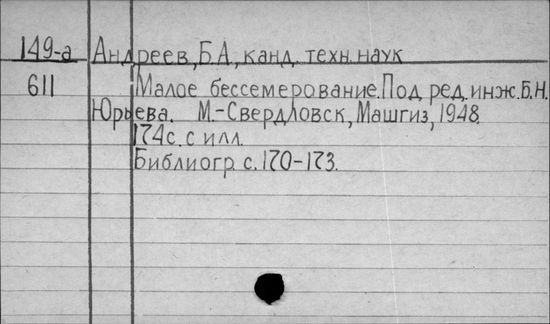 149-а Андреев, Б.А., канд. техн. наук
611 Малое бессемерование. Под ред. инж. Б.Н.
Юрьева. М.-Свердловск, Машгиз, 1948.
174с. с илл.
Библиогр. с. 170-173.